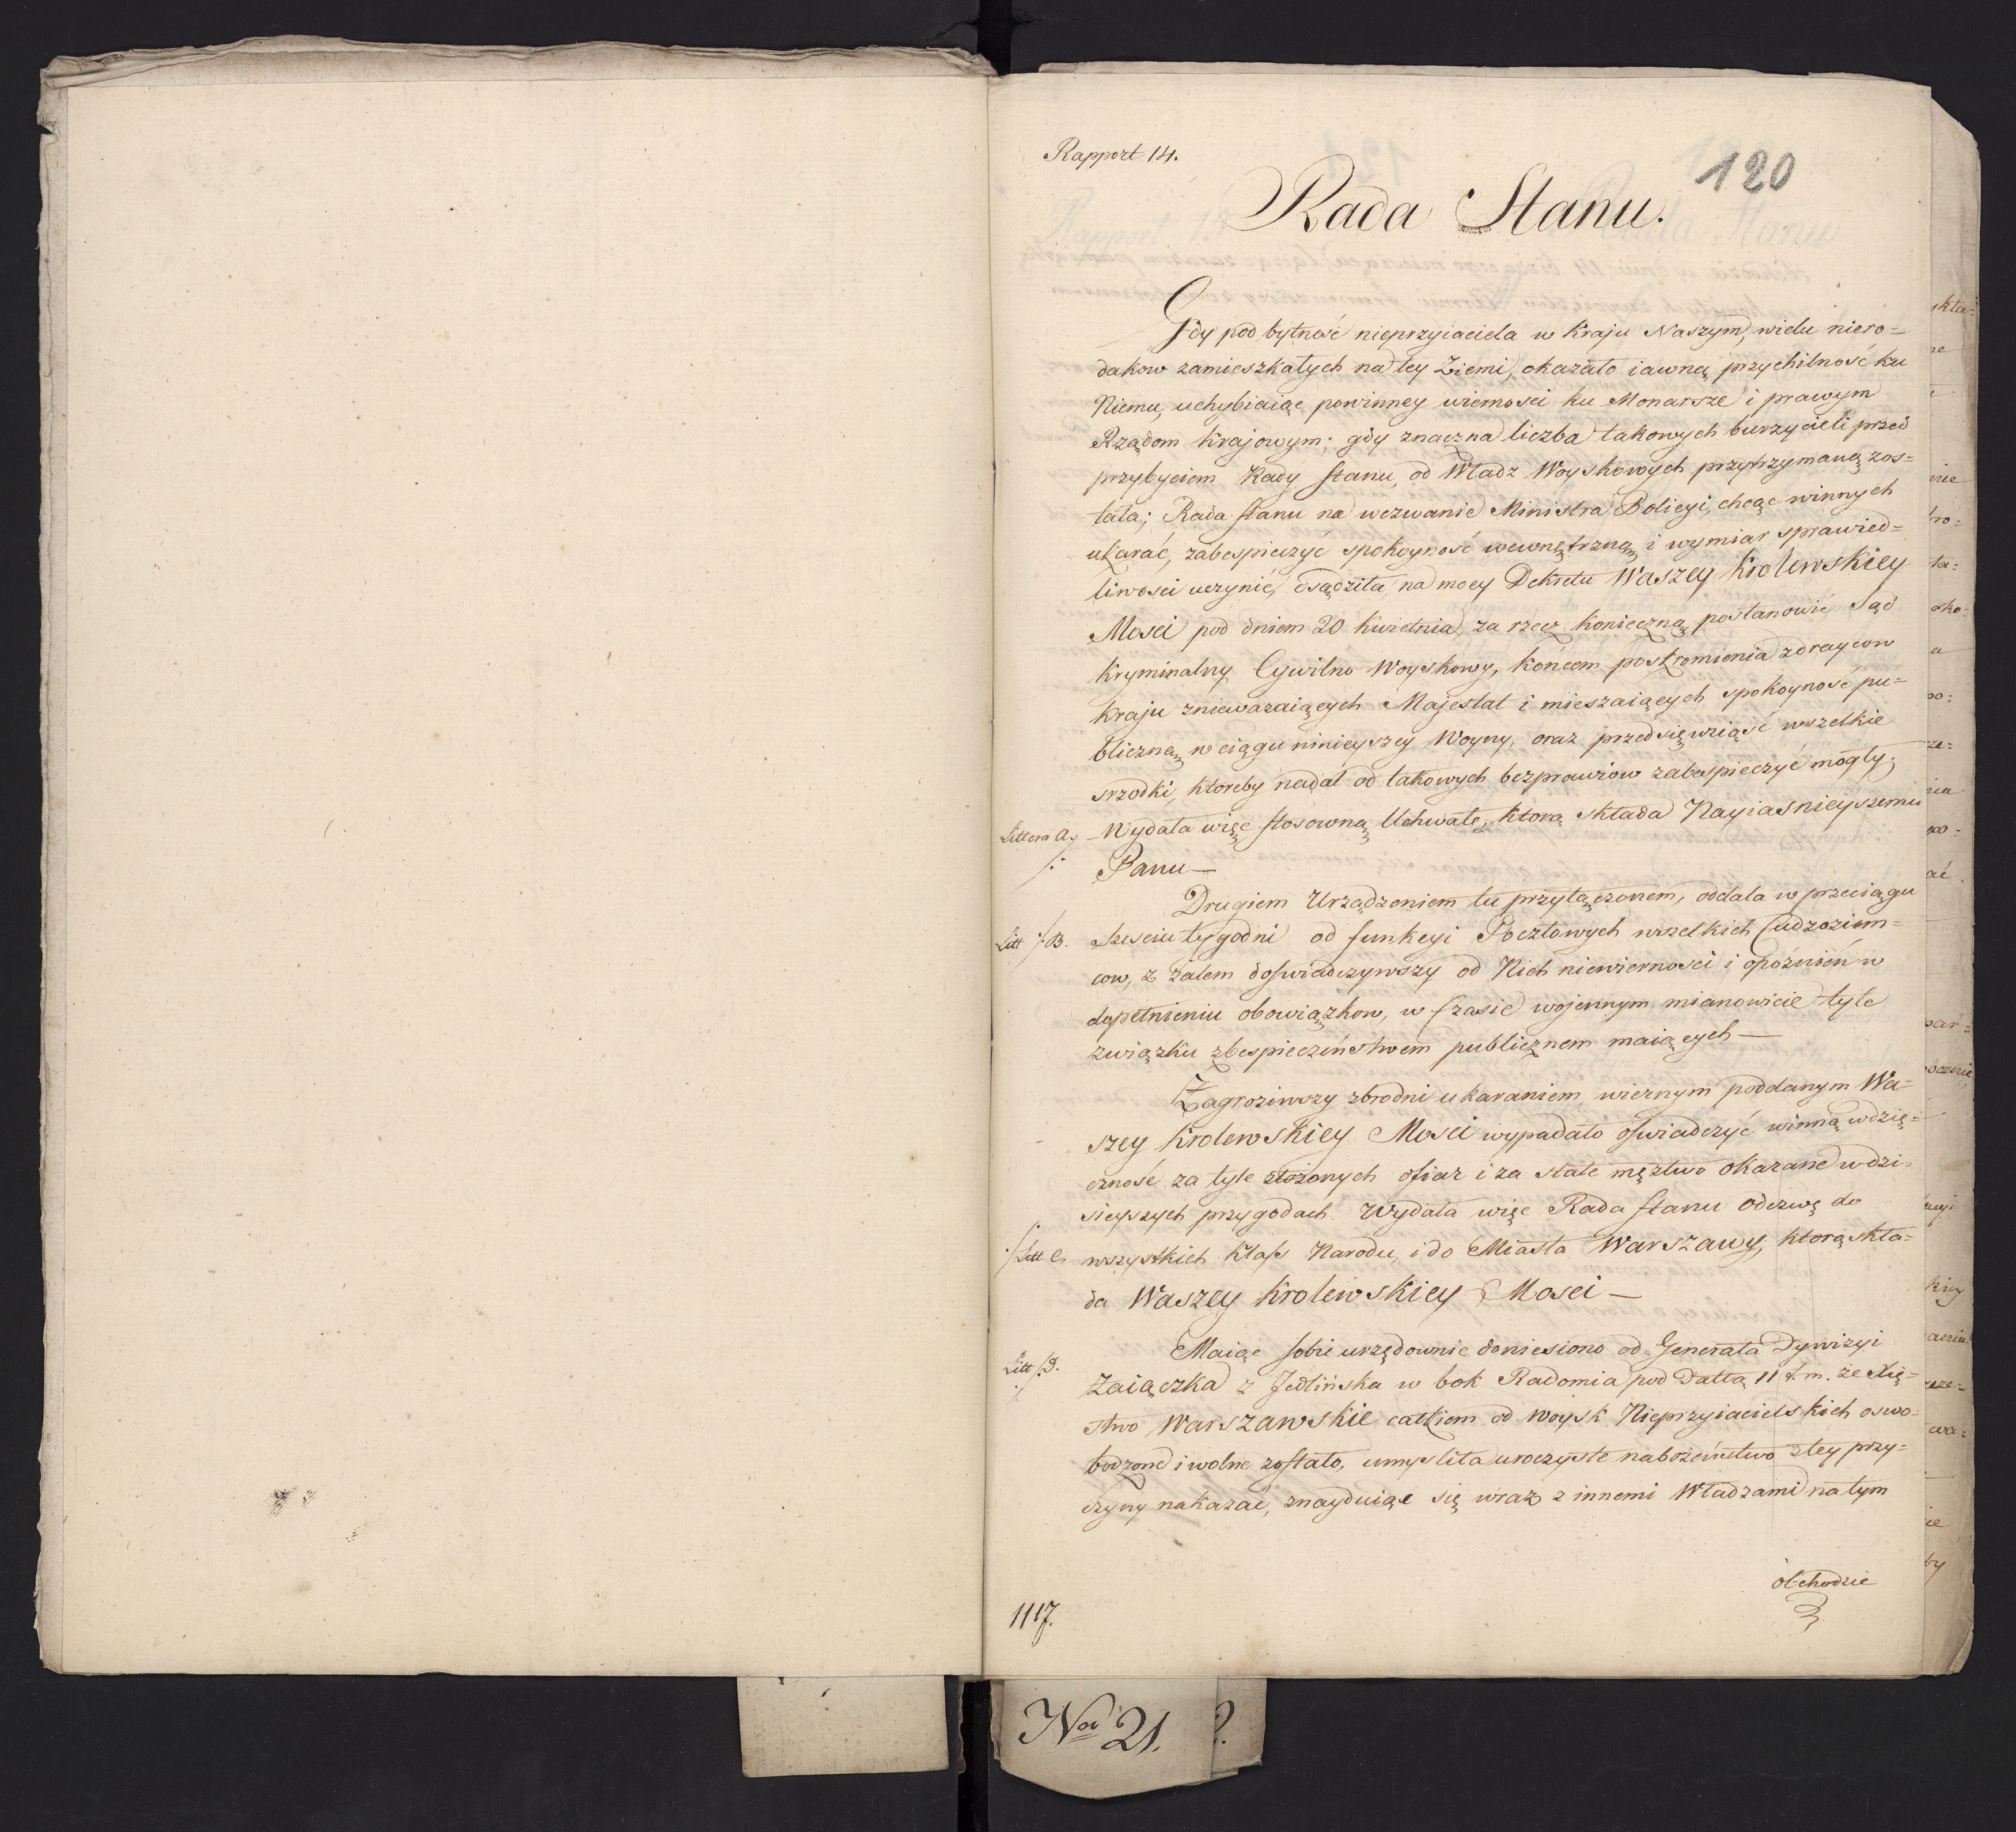 Rapport 14.
120
Rada Stanu.
Gdy pod bytność nieprzyiaciela w Kraju Naszym, wielu niero=
dakow zamieszkałych na tey Ziemi, okazało iawną przychilność ku
Niemu, uchybiaiąc powinney wierności ku Monarsze i prawym
Rządom Krajowym; gdy znaczna liczba takowych burzycieli przed
przybyciem Rady Stanu, od Władz Woyskowych przytrzymaną zos=
tała; Rada Stanu na wezwanie Ministra Policyi, chcąc winnych
ukarać, zabespieczyć spokoyność wewnętrzną i wymiar sprawied=
liwosci uczynić, osądziła na mocy Dekretu Waszey Krolewskiey
Mosci pod dniem 20 kwietnia, za rzecz konieczną postanowić Sąd
Kryminalny Cywilno Woyskowy, końcem poskromienia zdraycow
Kraju znieważaiących Majestat i mieszaiących spokoyność pu=
bliczną w ciągu ninieyszey Woyny, oraz przedsięwziąść wszelkie
srzodki, ktoreby nadal od takowych bezprawiow zabespieczyć mogły;
Littera A.
Wydała więc stosowną Uchwałę, ktorą składa Nayiasnieyszemu
Panu—
Drugiem Urządzeniem tu przyłączonem, oddala w przeciągu
Litt ./B.
Szesciu tygodni od funkcyi Pocztowych wszelkich Cudzoziem=
cow, z żalem doswiadczywszy od Nich niewiernosci i opóźnień w
dopełnieniu obowiązkow, w Czasie wojennym mianowicie tyle
związku z bespieczeństwem publicznem maiących—
Zagroziwszy zbrodni ukaraniem, wiernym poddanym Wa=
szey Krolewskiey Mosci wypadało oswiadczyć winną wdzię=
czność za tyle złożonych ofiar i za stałe męztwo okazane w dzi=
sieyszych przygodach. Wydała więc Rada Stanu odezwę do
./Litt C.
wszystkich Klass Narodu, i do Miasta Warszawy, ktorą skła=
da Waszey Krolewskiey Mosci—
Maiąc sobie urzędownie doniesiono od Generała Dywizyi
Litt /D.
Zaiączka z Jedlińska w bok Radomia pod Dattą 11 t. m. że Xię=
stwo Warszawskie całkiem od Woysk Nieprzyiacielskich oswo=
bodzone i wolne zostało, umysliła uroczyste nabożeństwo z tey przy=
czyny nakazać, znayduiąc się wraz z innemi Władzami na tym
obchodzie
1117.
Nor 21.